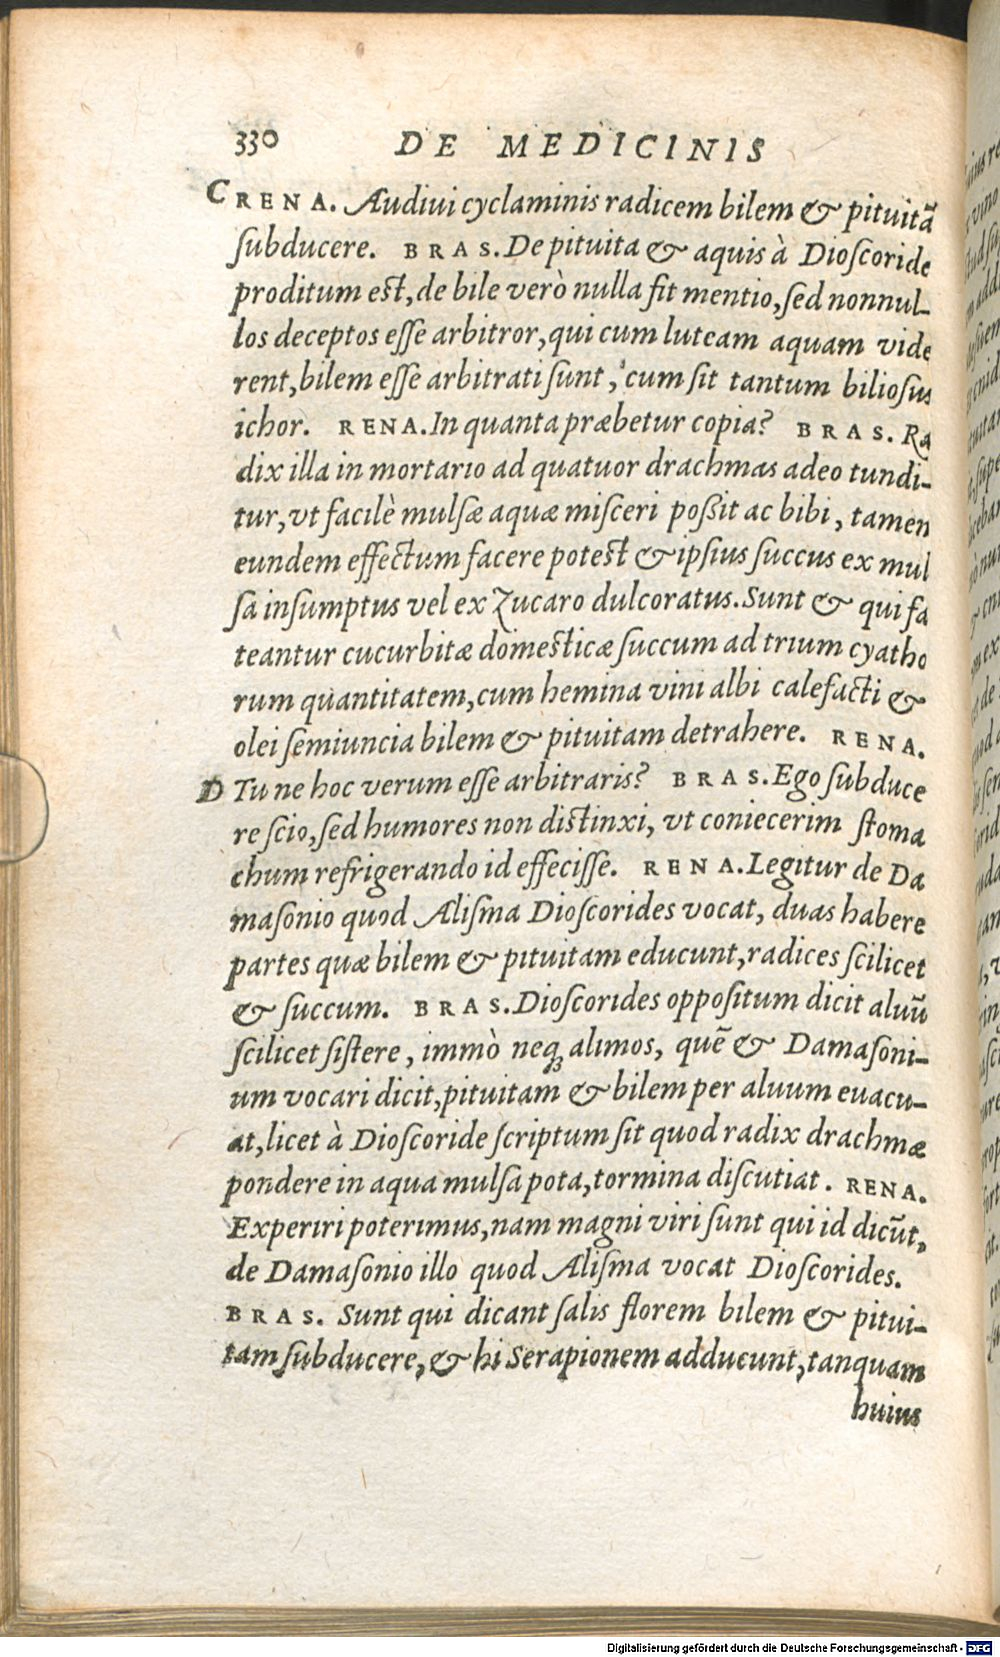 330 DE MEDICINIS
C RENA. Audiui cyclaminis radicem bilem & pituitã
ſubducere. BRAS. De pituita & aquis à Dioſcoride
proditum eſt, de bile verò nulla fit mentio, ſed nonnul-
los deceptos eſſe arbitror, qui cum luteam aquam vide
rent, bilem eſſe arbitrati ſunt, cum ſit tantum bilioſus
ichor. RENA. In quanta præbetur copia? BRAS. Ra
dix illa in mortario ad quatuor drachmas adeo tundi-
tur, vt facilè mulſæ aquæ miſceri poſſit ac bibi, tamen
eundem effectum facere poteſt & ipſius ſuccus ex mul
ſa inſumptus vel ex Zucaro dulcoratus. Sunt & qui fa
teantur cucurbitæ domeſticæ ſuccum ad trium cyatho
rum quantitatem, cum hemina vini albi calefacti &
olei ſemiuncia bilem & pituitam detrahere. RENA.
D Tu ne hoc verum eſſe arbitraris? BRAS. Ego ſubduce
re ſcio, ſed humores non diſtinxi, vt coniecerim ſtoma
chum refrigerando id effeciſſe. RENA. Legitur de Da
maſonio quod Aliſma Dioſcorides vocat, duas habere
partes quæ bilem & pituitam educunt, radices ſcilicet
& ſuccum. BRAS. Dioſcorides oppoſitum dicit aluũ
ſcilicet ſiſtere, immò neq; alimos, quẽ & Damaſoni-
um vocari dicit, pituitam & bilem per aluum euacu-
at, licet à Dioſcoride ſcriptum ſit quod radix drachmæ
pondere in aqua mulſa pota, tormina diſcutiat. RENA.
Experiri poterimus, nam magni viri ſunt qui id dicũt,
de Damaſonio illo quod Aliſma vocat Dioſcorides.
BRAS. Sunt qui dicant ſalis florem bilem & pitui-
tam ſubducere, & hi Serapionem adducunt, tanquam
huius
Digitalisierung gefördert durch die Deutsche Forschungsgemeinschaft - DFG